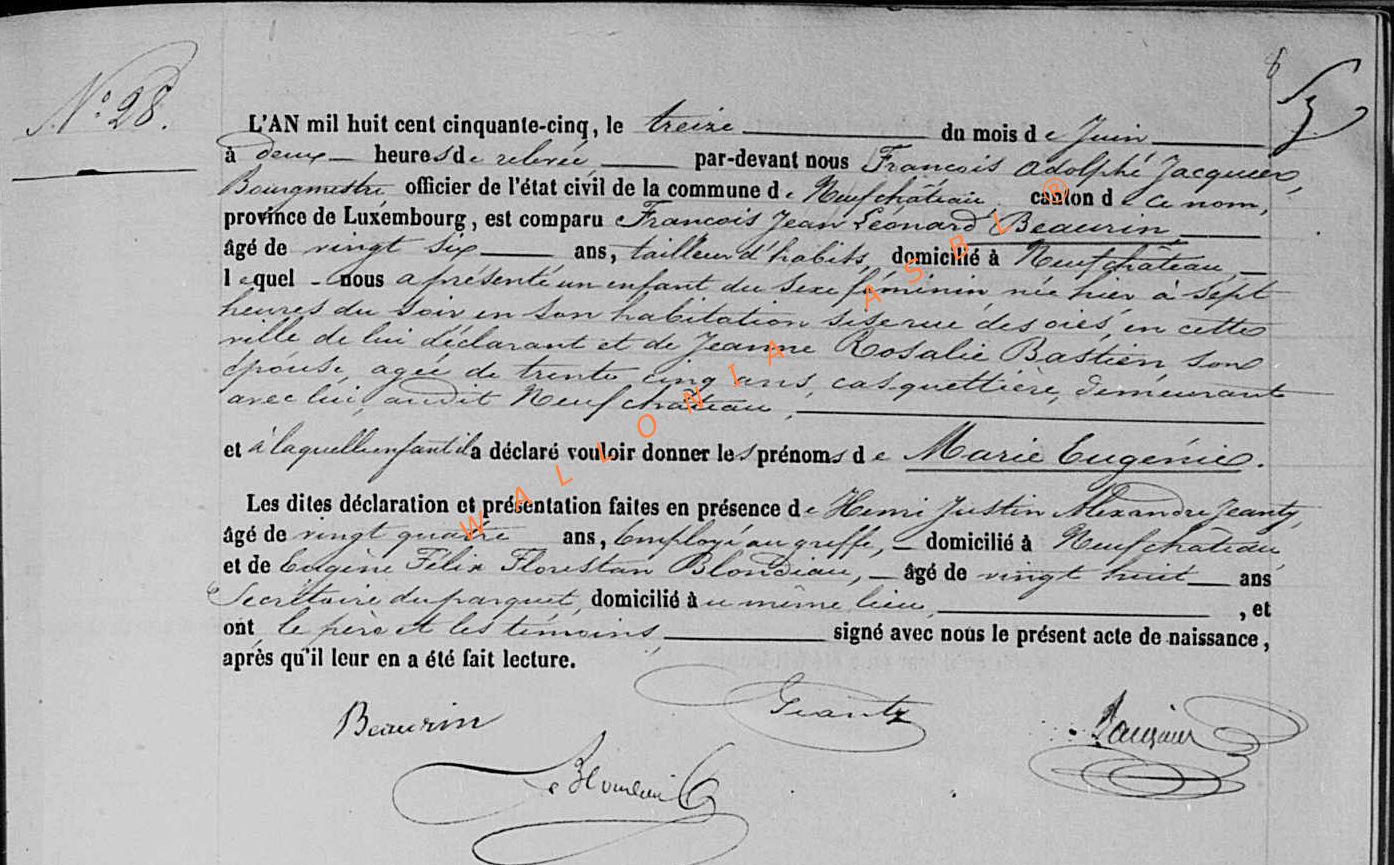 N° 28.
L'AN mil huit cent cinquante-cinq, le treize du mois de Juin
à deux heures de relevée par-devant nous François Adolphe Jacquier,
Bourgmestre, officier de l'état civil de la commune de Neufchâteau, canton de ce nom,
province de Luxembourg, est comparu François Jean Léonard Beaurin
âgé de vingt six ans, tailleur d'habits, domicilié à Neufchâteau,
lequel nous a présenté un enfant du sexe féminin, née hier à sept
heures du soir en son habitation sise rue des oies, en cette
ville de lui déclarant et de Jeanne Rosalie Bastien, son
épouse, agée de trente cinq ans, casquettière, demeurant
avec lui, audit Neufchateau,
et à laquelle enfant il a déclaré vouloir donner les prénoms de Marie Eugénie.
Les dites déclaration et présentation faites en présence de Henri Justin Alexandre Jeanty,
âgé de vingt quatre ans, Employé au greffe, domicilié à Neufchateau
et de Eugène Félix Florestan Blondiau, âgé de vingt huit ans
Secrétaire du parquet, domicilié au même lieu, , et
ont le père et les témoins, signé avec nous le présent acte de naissance,
après qu'il leur en a été fait lecture.
Beaurin
Jeanty
WALLONIA ASBL ®